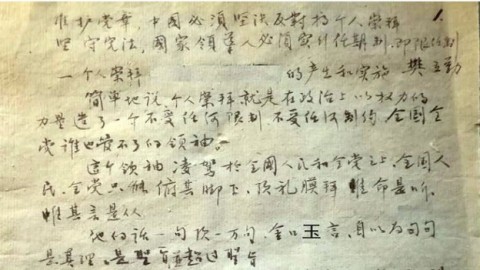 维护党章,中国必须坚决反对搞个人崇拜 1.
坚守宪法,国家领导人必须实行任期制、即限任制
一 个人崇拜 的产生和实施 樊立勤
简单地说,个人崇拜就是在政治上以权力的
力量造了一个不受任何限制不受任何制约,全国全
党谁也管不了的领袖。
这个领袖凌驾於全国人民和全党之上,全国人
民、全党只能俯其脚下,顶礼膜拜惟命是听,
惟其言是从。
他的话一句顶一万句,金口玉言,自以为句句
是真理,是圣旨超过圣旨